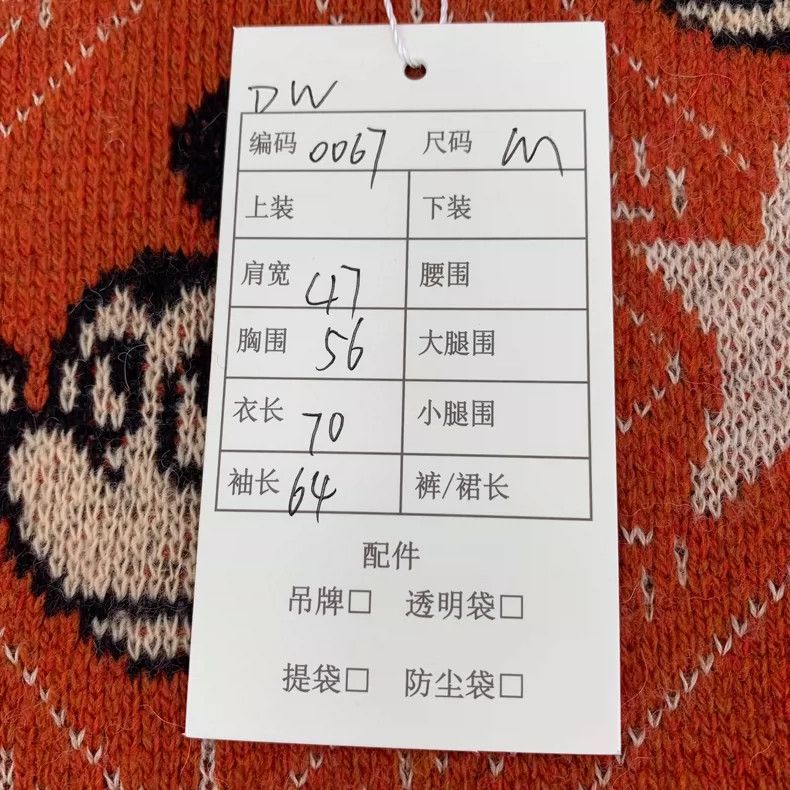 DW
编码 0067 尺码 M
上装 下装
肩宽 47 腰围
胸围 56 大腿围
衣长 70 小腿围
袖长 64 裤/裙长
配件
吊牌□ 透明袋□
提袋□ 防尘袋□